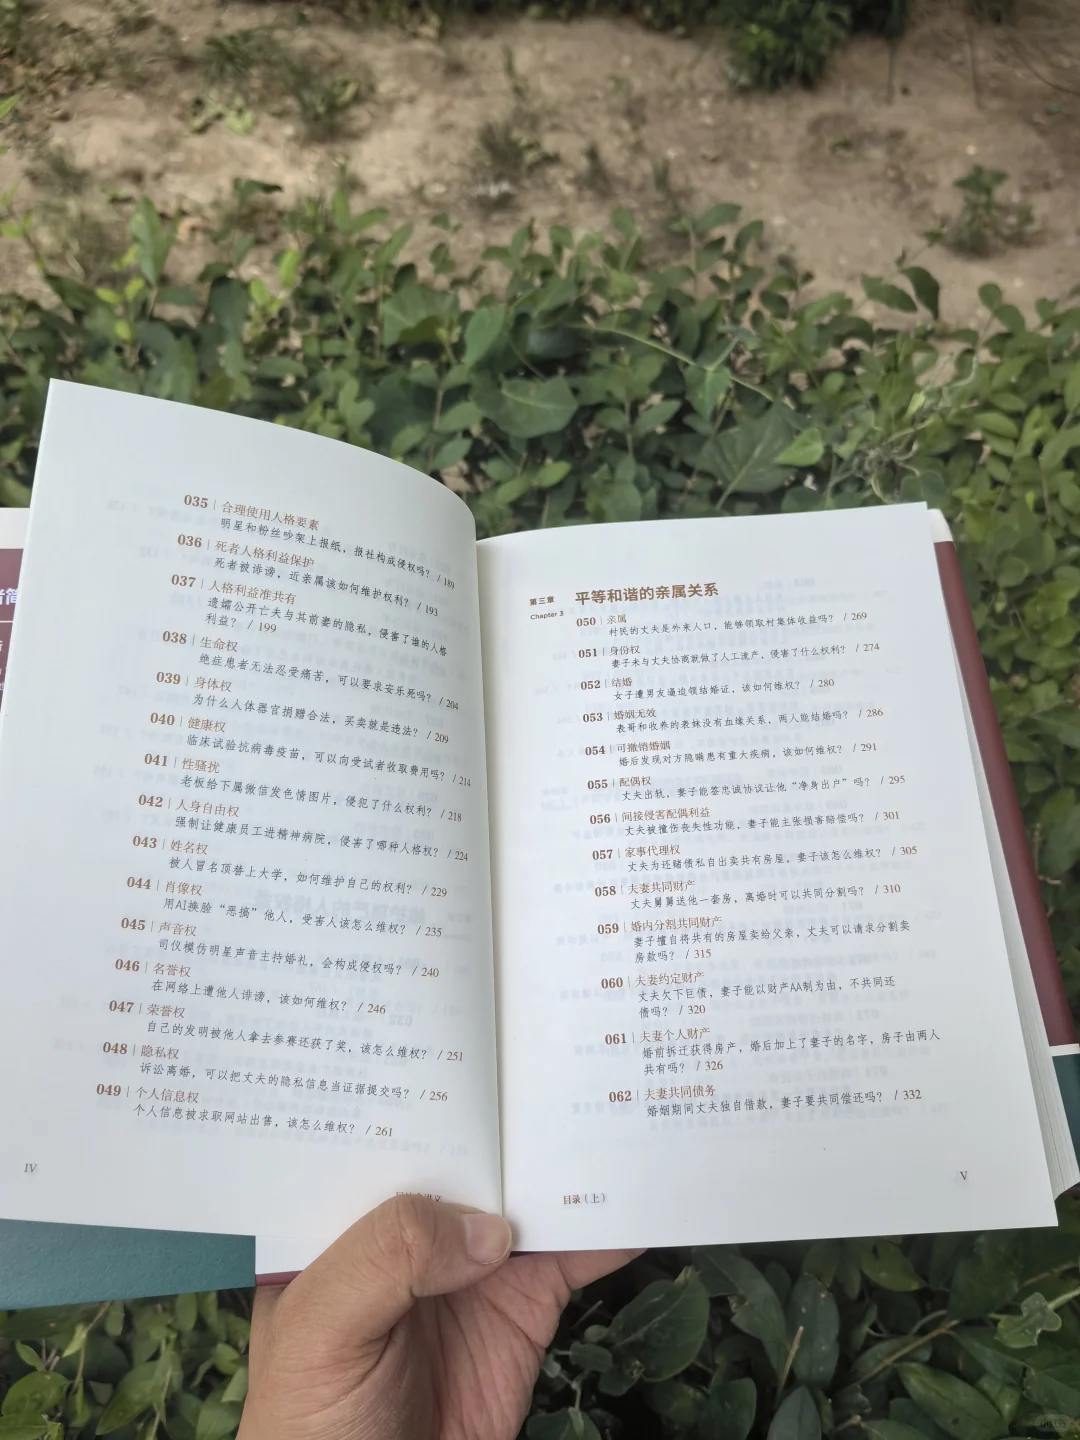 035 | 合理使用人格要素
明星和粉丝吵架上报纸，报社构成侵权吗？ / 189
036 | 死者人格利益保护
死者被诽谤，近亲属该如何维护权利？ / 193
037 | 人格利益准共有
遗孀公开亡夫与其前妻的隐私，侵害了谁的人格
利益？ / 199
038 | 生命权
绝症患者无法忍受痛苦，可以要求安乐死吗？ / 204
039 | 身体权
为什么人体器官捐赠合法，买卖就是违法？ / 209
040 | 健康权
临床试验抗病毒疫苗，可以向受试者收取费用吗？ / 214
041 | 性骚扰
老板给下属微信发色情图片，侵犯了什么权利？ / 218
042 | 人身自由权
强制让健康员工进精神病院，侵害了哪种人格权？ / 224
043 | 姓名权
被人冒名顶替上大学，如何维护自己的权利？ / 229
044 | 肖像权
用AI换脸“恶搞”他人，受害人该怎么维权？ / 235
045 | 声音权
司仪模仿明星声音主持婚礼，会构成侵权吗？ / 240
046 | 名誉权
在网络上遭他人诽谤，该如何维权？ / 246
047 | 荣誉权
自己的发明被他人拿去参赛还获了奖，该怎么维权？ / 251
048 | 隐私权
诉讼离婚，可以把丈夫的隐私信息当证据提交吗？ / 256
049 | 个人信息权
个人信息被求职网站出售，该怎么维权？ / 261
IV
第三章 平等和谐的亲属关系
Chapter 3
050 | 亲属
村民的丈夫是外来人口，能够领取村集体收益吗？ / 269
051 | 身份权
妻子未与丈夫协商就做了人工流产，侵害了什么权利？ / 274
052 | 结婚
女子遭男友逼迫领结婚证，该如何维权？ / 280
053 | 婚姻无效
表哥和收养的表妹没有血缘关系，两人能结婚吗？ / 286
054 | 可撤销婚姻
婚后发现对方隐瞒患有重大疾病，该如何维权？ / 291
055 | 配偶权
丈夫出轨，妻子能签忠诚协议让他“净身出户”吗？ / 295
056 | 间接侵害配偶利益
丈夫被撞伤丧失性功能，妻子能主张损害赔偿吗？ / 301
057 | 家事代理权
丈夫为还赌债私自出卖共有房屋，妻子该怎么维权？ / 305
058 | 夫妻共同财产
丈夫舅舅送他一套房，离婚时可以共同分割吗？ / 310
059 | 婚内分割共同财产
妻子擅自将共有的房屋卖给父亲，丈夫可以请求分割卖
房款吗？ / 315
060 | 夫妻约定财产
丈夫欠下巨债，妻子能以财产AA制为由，不共同还
债吗？ / 320
061 | 夫妻个人财产
婚前拆迁获得房产，婚后加上了妻子的名字，房子由两人
共有吗？ / 326
062 | 夫妻共同债务
婚姻期间丈夫独自借款，妻子要共同偿还吗？ / 332
目录（上）
V